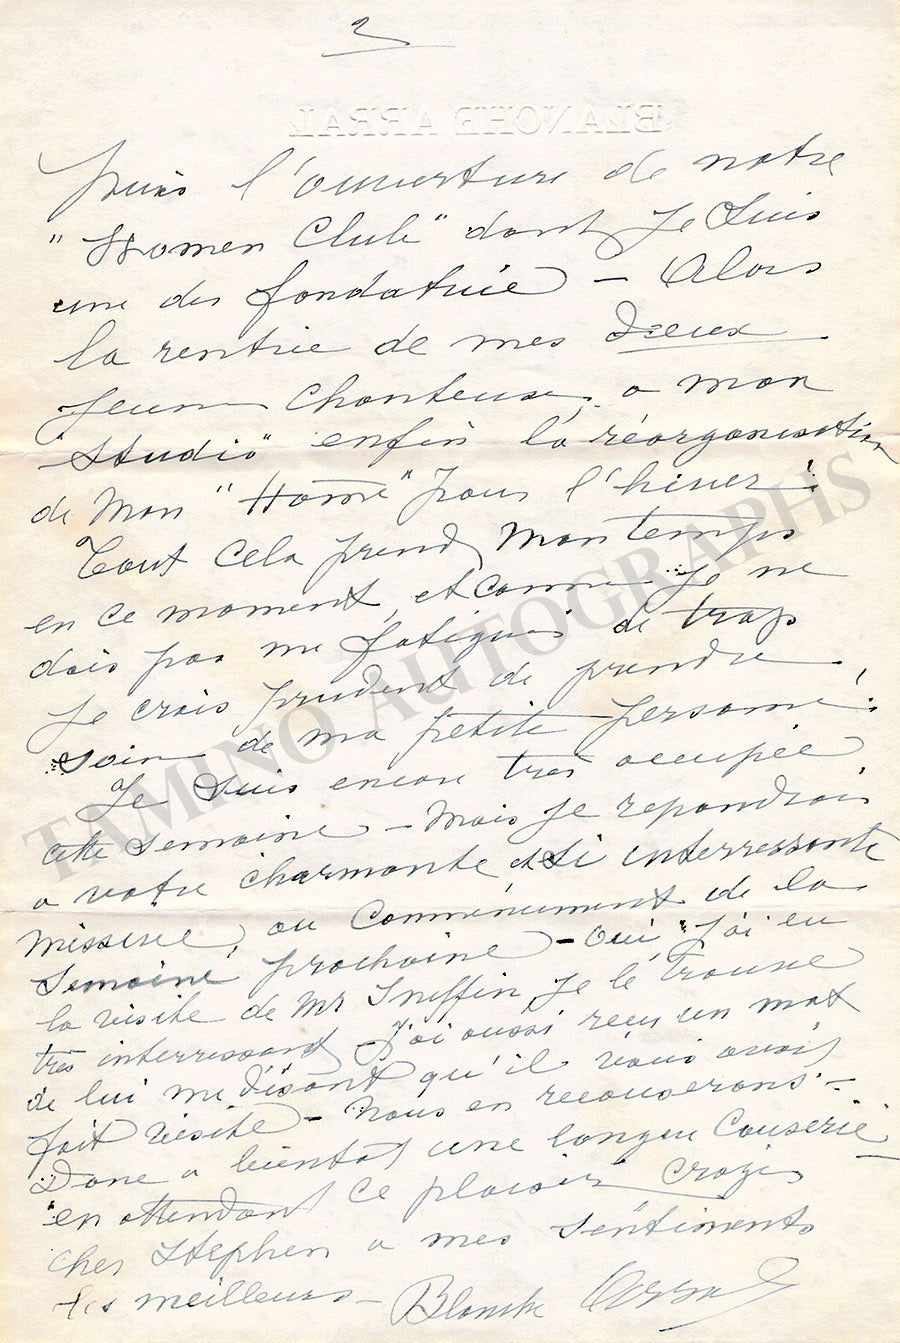 2
BLANCHE ARRAL
Puis l'ouverture de notre
"Women Club" dont je suis
une des fondatrice – Alors
la rentrée de mes deux
Jeune Chanteuse, a mon
"Studio" enfin la réorganisation
de Mon "Home" pour l'hiver!
Tout cela prend mon temps
en ce moment, et comme je ne
dois pas me fatiguer de trop
je crois prudent de prendre
soin de ma petite personne!
Je suis encore très occupée
cette semaine – Mais je repondrai
a votre charmante et si interressante
missive, au Commencement de la
Semaine prochaine – oui j'ai eu
la visite de Mr Sniffin, je le trouve
très interressant – j'ai aussi reçu un mot
de lui me disant qu'il vous avait
fait visite – Nous en recauserons –
Donc a bientot une longue Causerie –
en attendant ce plaisir croyez
cher Stephen a mes sentiments
les meilleurs –
Blanche Arral
TAMINO AUTOGRAPHS